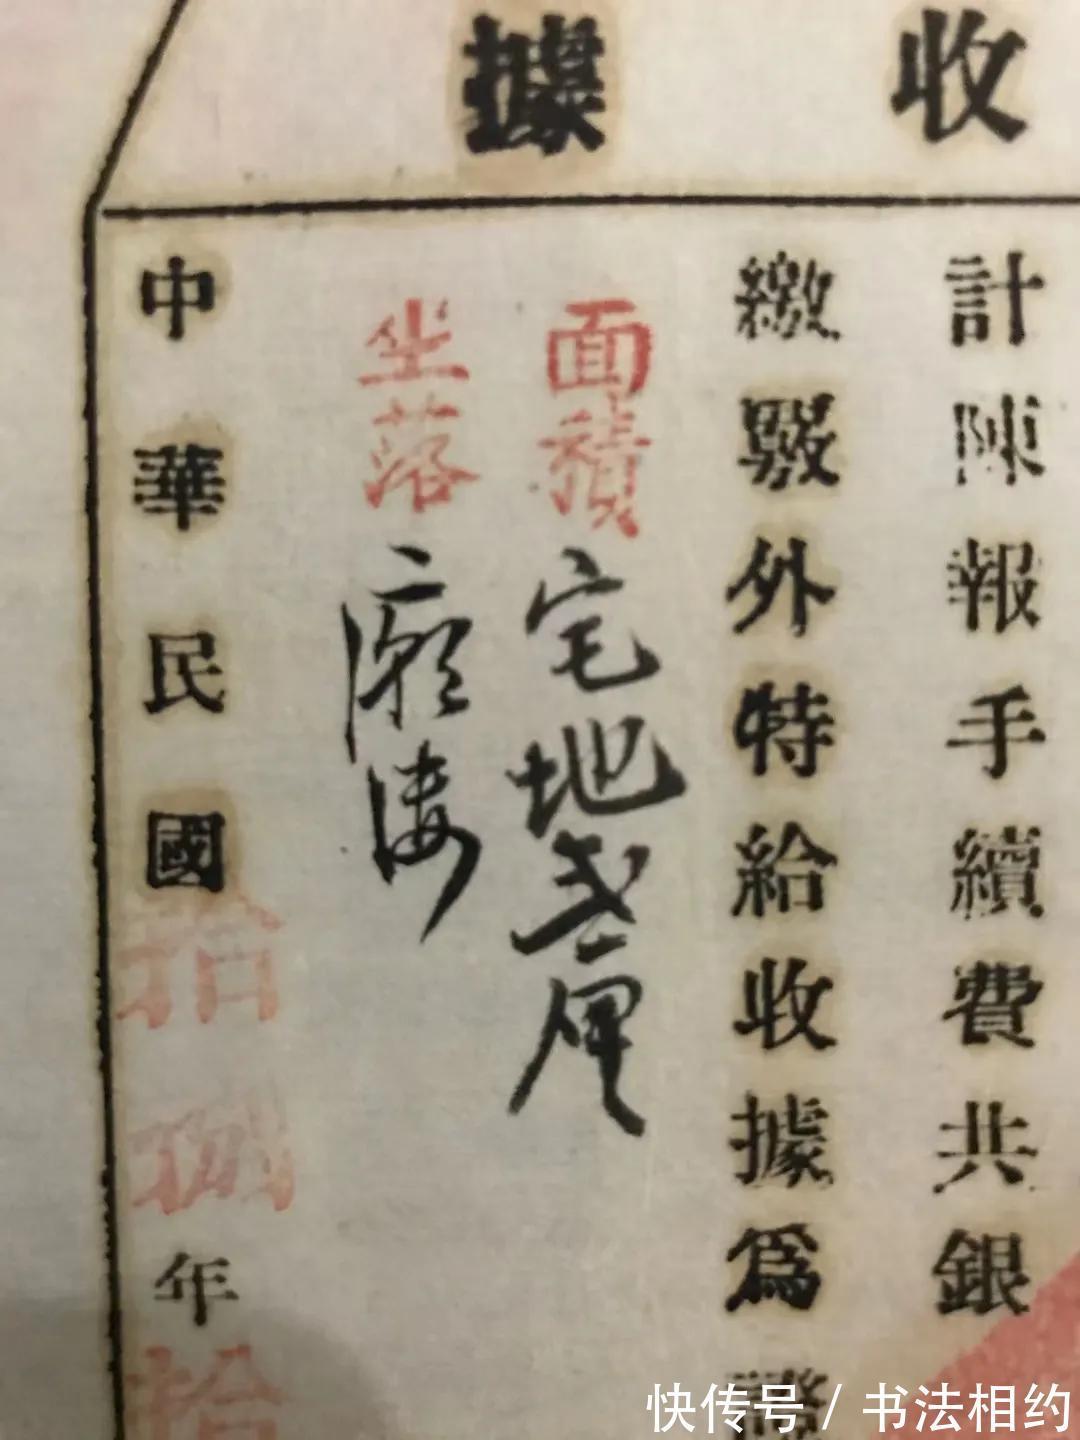 收據
計陳報手續費共銀
繳驗外特給收據為證
面積宅地
坐落
中華民國拾捌年拾
快传号/书法相约